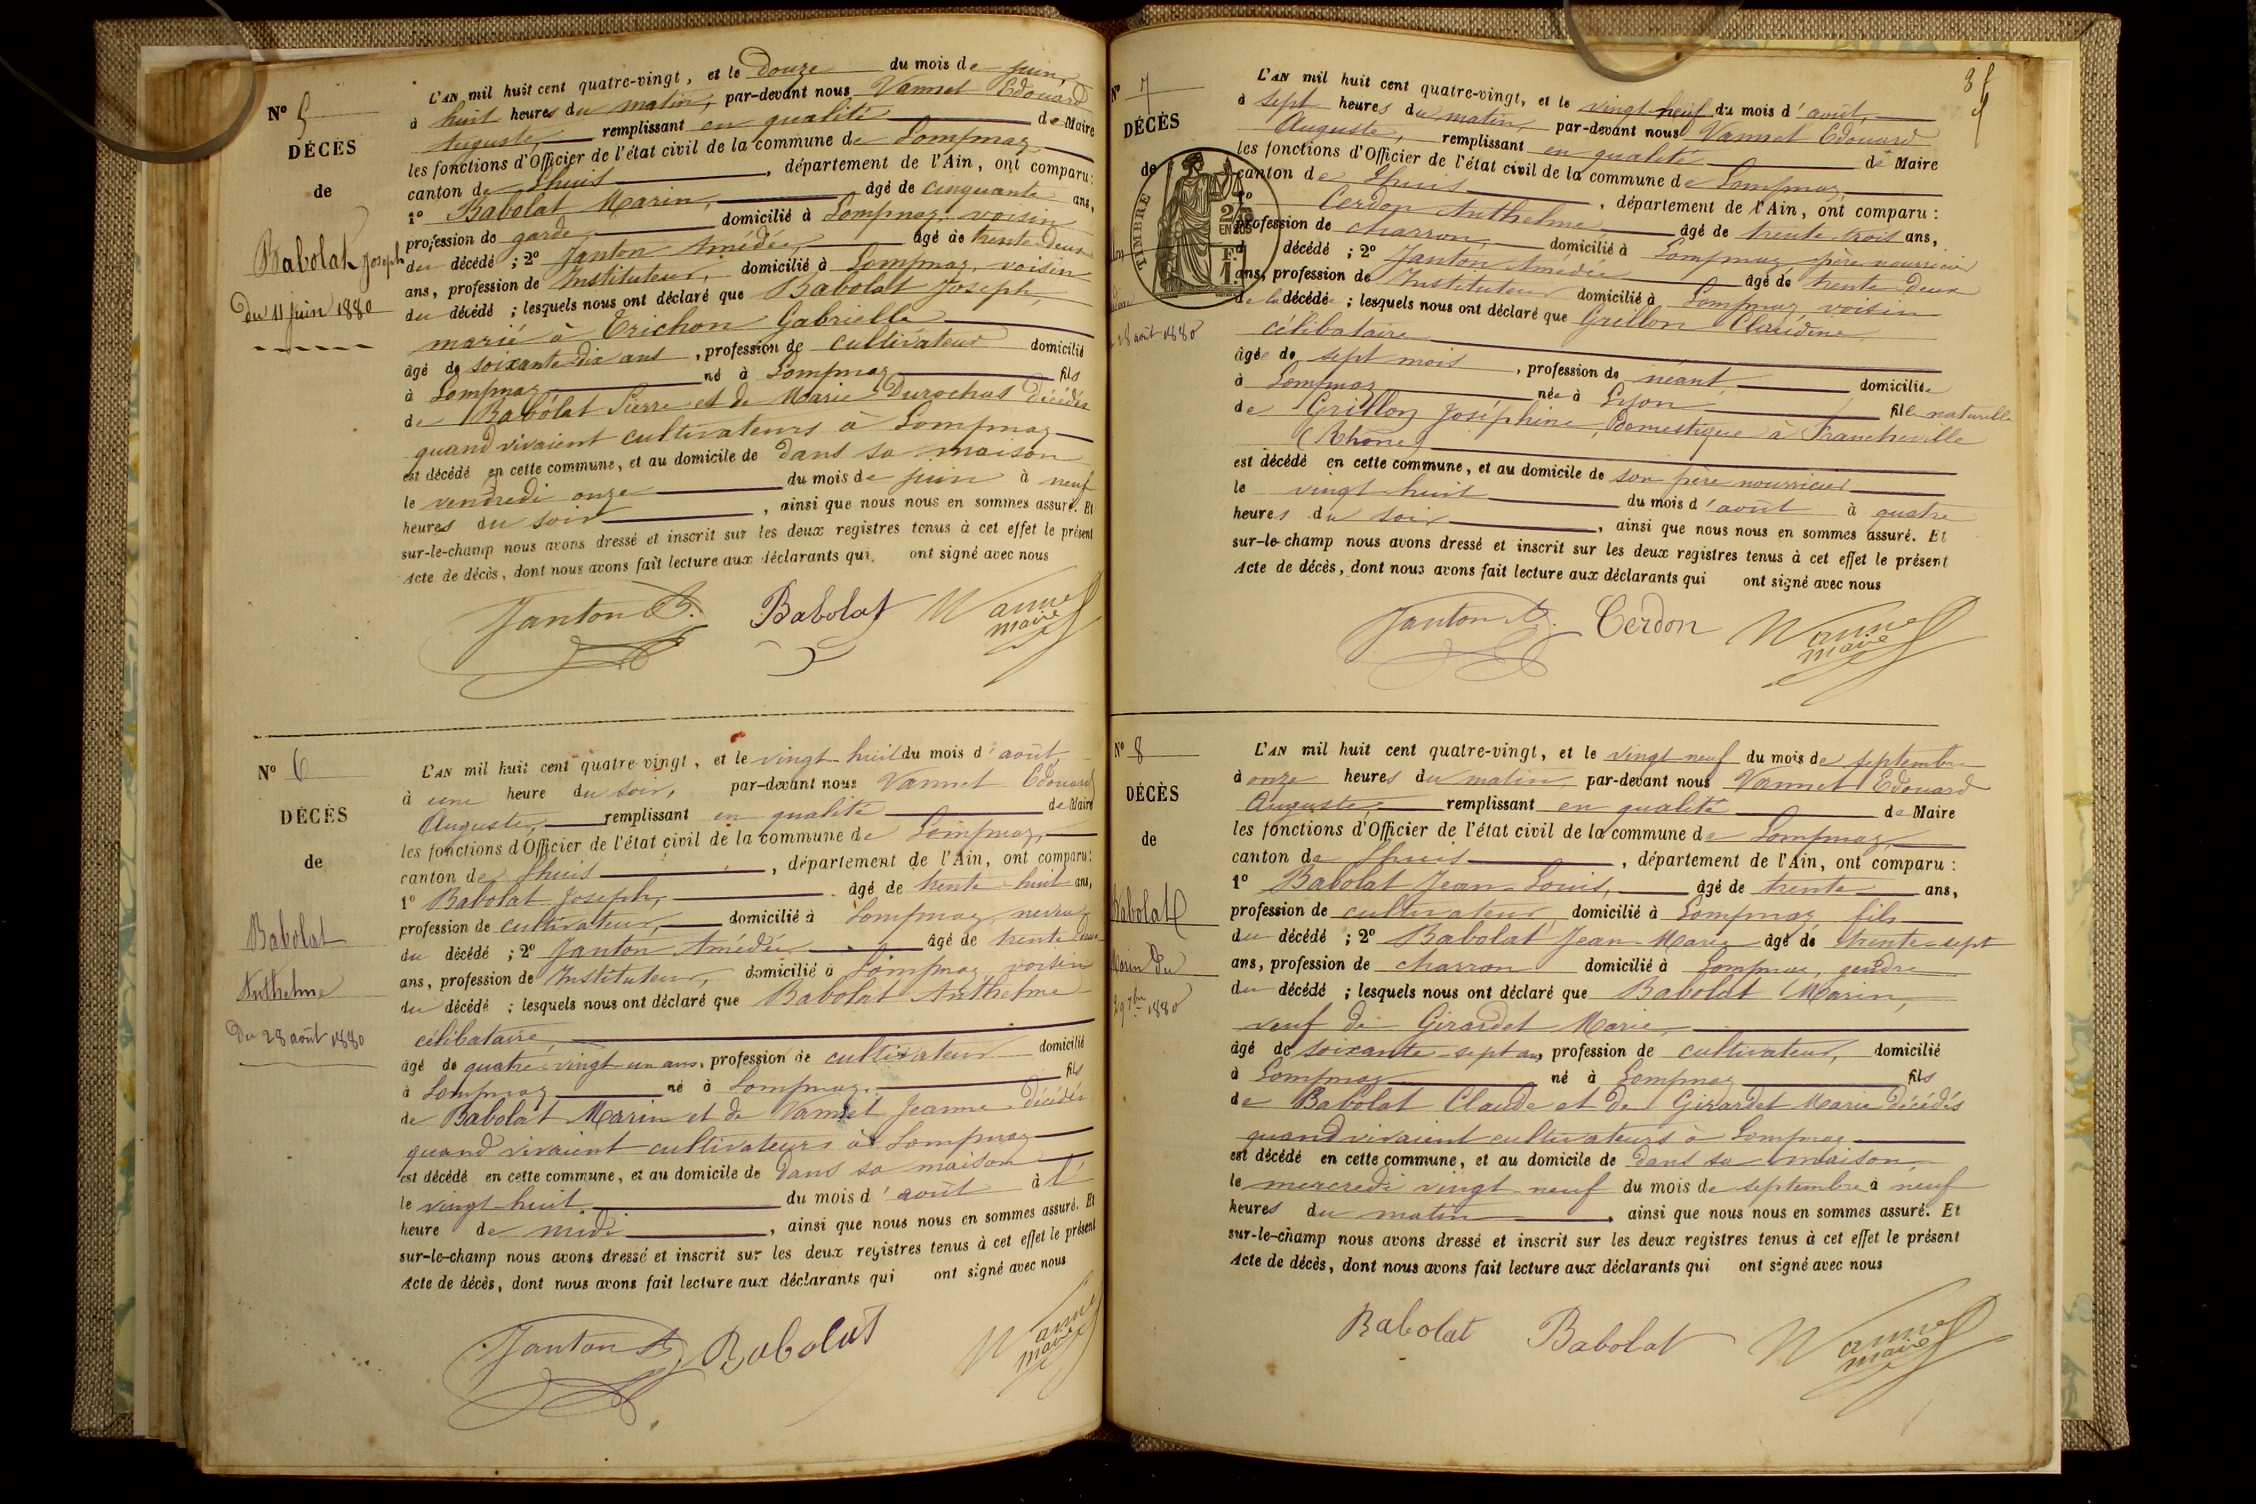 N° 5
DÉCÈS
de
Babolat Joseph
Du 11 juin 1880
L'AN mil huit cent quatre-vingt, et le Douze du mois de juin,
à huit heures du matin, par-devant nous Vannet Edouard
Auguste, remplissant en qualité de Maire
les fonctions d'Officier de l'état civil de la commune de Lompnaz
canton de Lhuis, département de l'Ain, ont comparu :
1° Babolat Marin, âgé de cinquante ans,
profession de garde, domicilié à Lompnaz, voisin
du décédé ; 2° Janton Amédée, âgé de trente-deux
ans, profession de Instituteur, domicilié à Lompnaz, voisin
du décédé ; lesquels nous ont déclaré que Babolat Joseph,
marié à Trichon Gabrielle
âgé de soixante-dix ans, profession de cultivateur domicilié
à Lompnaz né à Lompnaz fils
de Babolat Pierre et de Marie Durochat décédés
quand vivaient cultivateurs à Lompnaz
est décédé en cette commune, et au domicile de dans sa maison
le vendredi onze du mois de juin à neuf
heures du soir, ainsi que nous nous en sommes assuré. Et
sur-le-champ nous avons dressé et inscrit sur les deux registres tenus à cet effet le présent
Acte de décès, dont nous avons fait lecture aux déclarants qui ont signé avec nous
Janton A. Babolat Vannet
maire
N° 6
DÉCÈS
de
Babolat
Anthelme
Du 28 août 1880
L'AN mil huit cent quatre-vingt, et le vingt-huit du mois d'août,
à une heure du soir, par-devant nous Vannet Edouard
Auguste, remplissant en qualité de Maire
les fonctions d'Officier de l'état civil de la commune de Lompnaz,
canton de Lhuis, département de l'Ain, ont comparu :
1° Babolat Joseph, âgé de trente-huit ans,
profession de cultivateur, domicilié à Lompnaz, neveu
du décédé ; 2° Janton Amédée âgé de trente-deux
ans, profession de Instituteur, domicilié à Lompnaz voisin
du décédé ; lesquels nous ont déclaré que Babolat Anthelme
célibataire,
âgé de quatre-vingt-un ans, profession de cultivateur domicilié
à Lompnaz né à Lompnaz, fils
de Babolat Marin et de Vannet Jeanne décédés
quand vivaient cultivateurs à Lompnaz
est décédé en cette commune, et au domicile de dans sa maison
le vingt-huit du mois d'août à l'
heure de midi, ainsi que nous nous en sommes assuré. Et
sur-le-champ nous avons dressé et inscrit sur les deux registres tenus à cet effet le présent
Acte de décès, dont nous avons fait lecture aux déclarants qui ont signé avec nous
Janton A. Babolat Vannet
maire
N° 7
DÉCÈS
de
28 août 1880
TIMBRE
2/10
EN SUS
F.
1.
L'AN mil huit cent quatre-vingt, et le vingt-neuf du mois d'août,
à sept heures du matin, par-devant nous Vannet Edouard
Auguste, remplissant en qualité de Maire
les fonctions d'Officier de l'état civil de la commune de Lompnaz,
canton de Lhuis, département de l'Ain, ont comparu :
1° Cerdon Anthelme âgé de trente-trois ans,
profession de charron, domicilié à Lompnaz père nourricier
d décédé ; 2° Janton Amédée âgé de trente-deux
ans, profession de Instituteur domicilié à Lompnaz voisin
de la décédée ; lesquels nous ont déclaré que Grillon Claudine
célibataire
âgée de sept mois, profession de néant, domiciliée
à Lompnaz née à Lyon fille naturelle
de Grillon Joséphine, Domestique à Francheville
(Rhône)
est décédé en cette commune, et au domicile de son père nourricier
le vingt-huit du mois d'août à quatre
heures du soir, ainsi que nous nous en sommes assuré. Et
sur-le-champ nous avons dressé et inscrit sur les deux registres tenus à cet effet le présent
Acte de décès, dont nous avons fait lecture aux déclarants qui ont signé avec nous
Janton A. Cerdon Vannet
maire
N° 8
DÉCÈS
de
Babolat
Marin Du
29 7bre 1880
L'AN mil huit cent quatre-vingt, et le vingt-neuf du mois de septembre
à onze heures du matin par-devant nous Vannet Edouard
Auguste, remplissant en qualité de Maire
les fonctions d'Officier de l'état civil de la commune de Lompnaz,
canton de Lhuis, département de l'Ain, ont comparu :
1° Babolat Jean-Louis, âgé de trente ans,
profession de cultivateur domicilié à Lompnaz fils
du décédé ; 2° Babolat Jean-Marie âgé de trente-sept
ans, profession de charron domicilié à Lompnaz, gendre
du décédé ; lesquels nous ont déclaré que Babolat Marin,
veuf de Girardet Marie,
âgé de soixante-sept ans, profession de cultivateur, domicilié
à Lompnaz né à Lompnaz fils
de Babolat Claude et de Girardet Marie décédés
quand vivaient cultivateurs à Lompnaz
est décédé en cette commune, et au domicile de dans sa maison,
le mercredi vingt-neuf du mois de septembre à neuf
heures du matin, ainsi que nous nous en sommes assuré. Et
sur-le-champ nous avons dressé et inscrit sur les deux registres tenus à cet effet le présent
Acte de décès, dont nous avons fait lecture aux déclarants qui ont signé avec nous
Babolat Babolat Vannet
maire